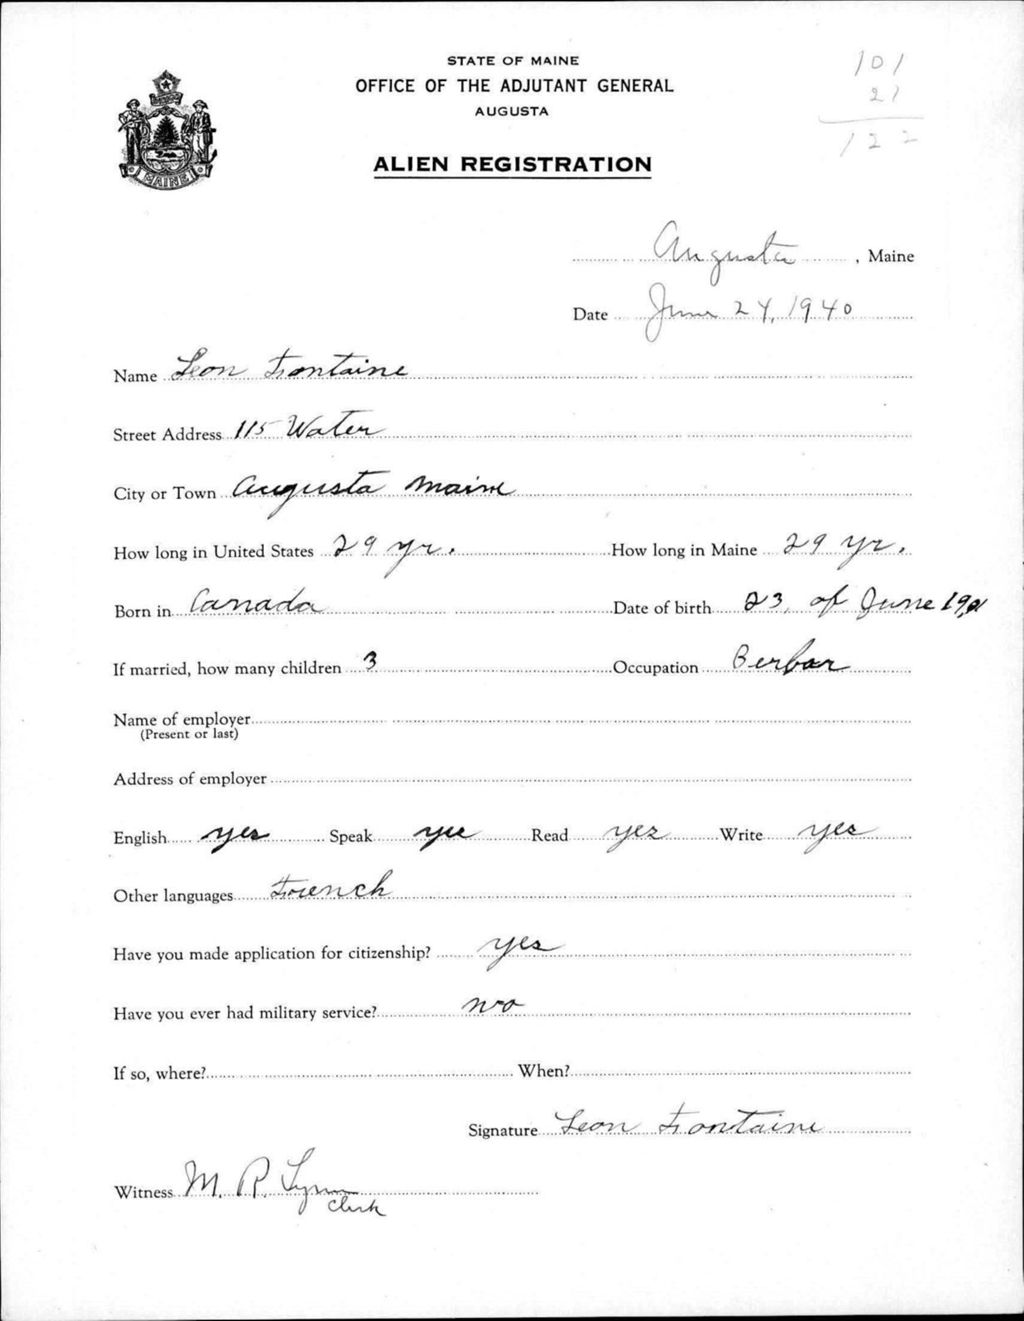 STATE OF MAINE
OFFICE OF THE ADJUTANT GENERAL
AUGUSTA
ALIEN REGISTRATION
101
21
122
MAINE
Augusta, Maine
Date June 24, 1940
Name Leon Fontaine
Street Address 115 Water
City or Town Augusta Maine
How long in United States 29 yr. How long in Maine 29 yr.
Born in Canada Date of birth 23, of June
If married, how many children 3 Occupation Berbar
Name of employer
(Present or last)
Address of employer
English yes Speak yes Read yes Write yes
Other languages French
Have you made application for citizenship? yes
Have you ever had military service? no
If so, where? When?
Signature Leon Fontaine
Witness M. R. Lynn
Clerk